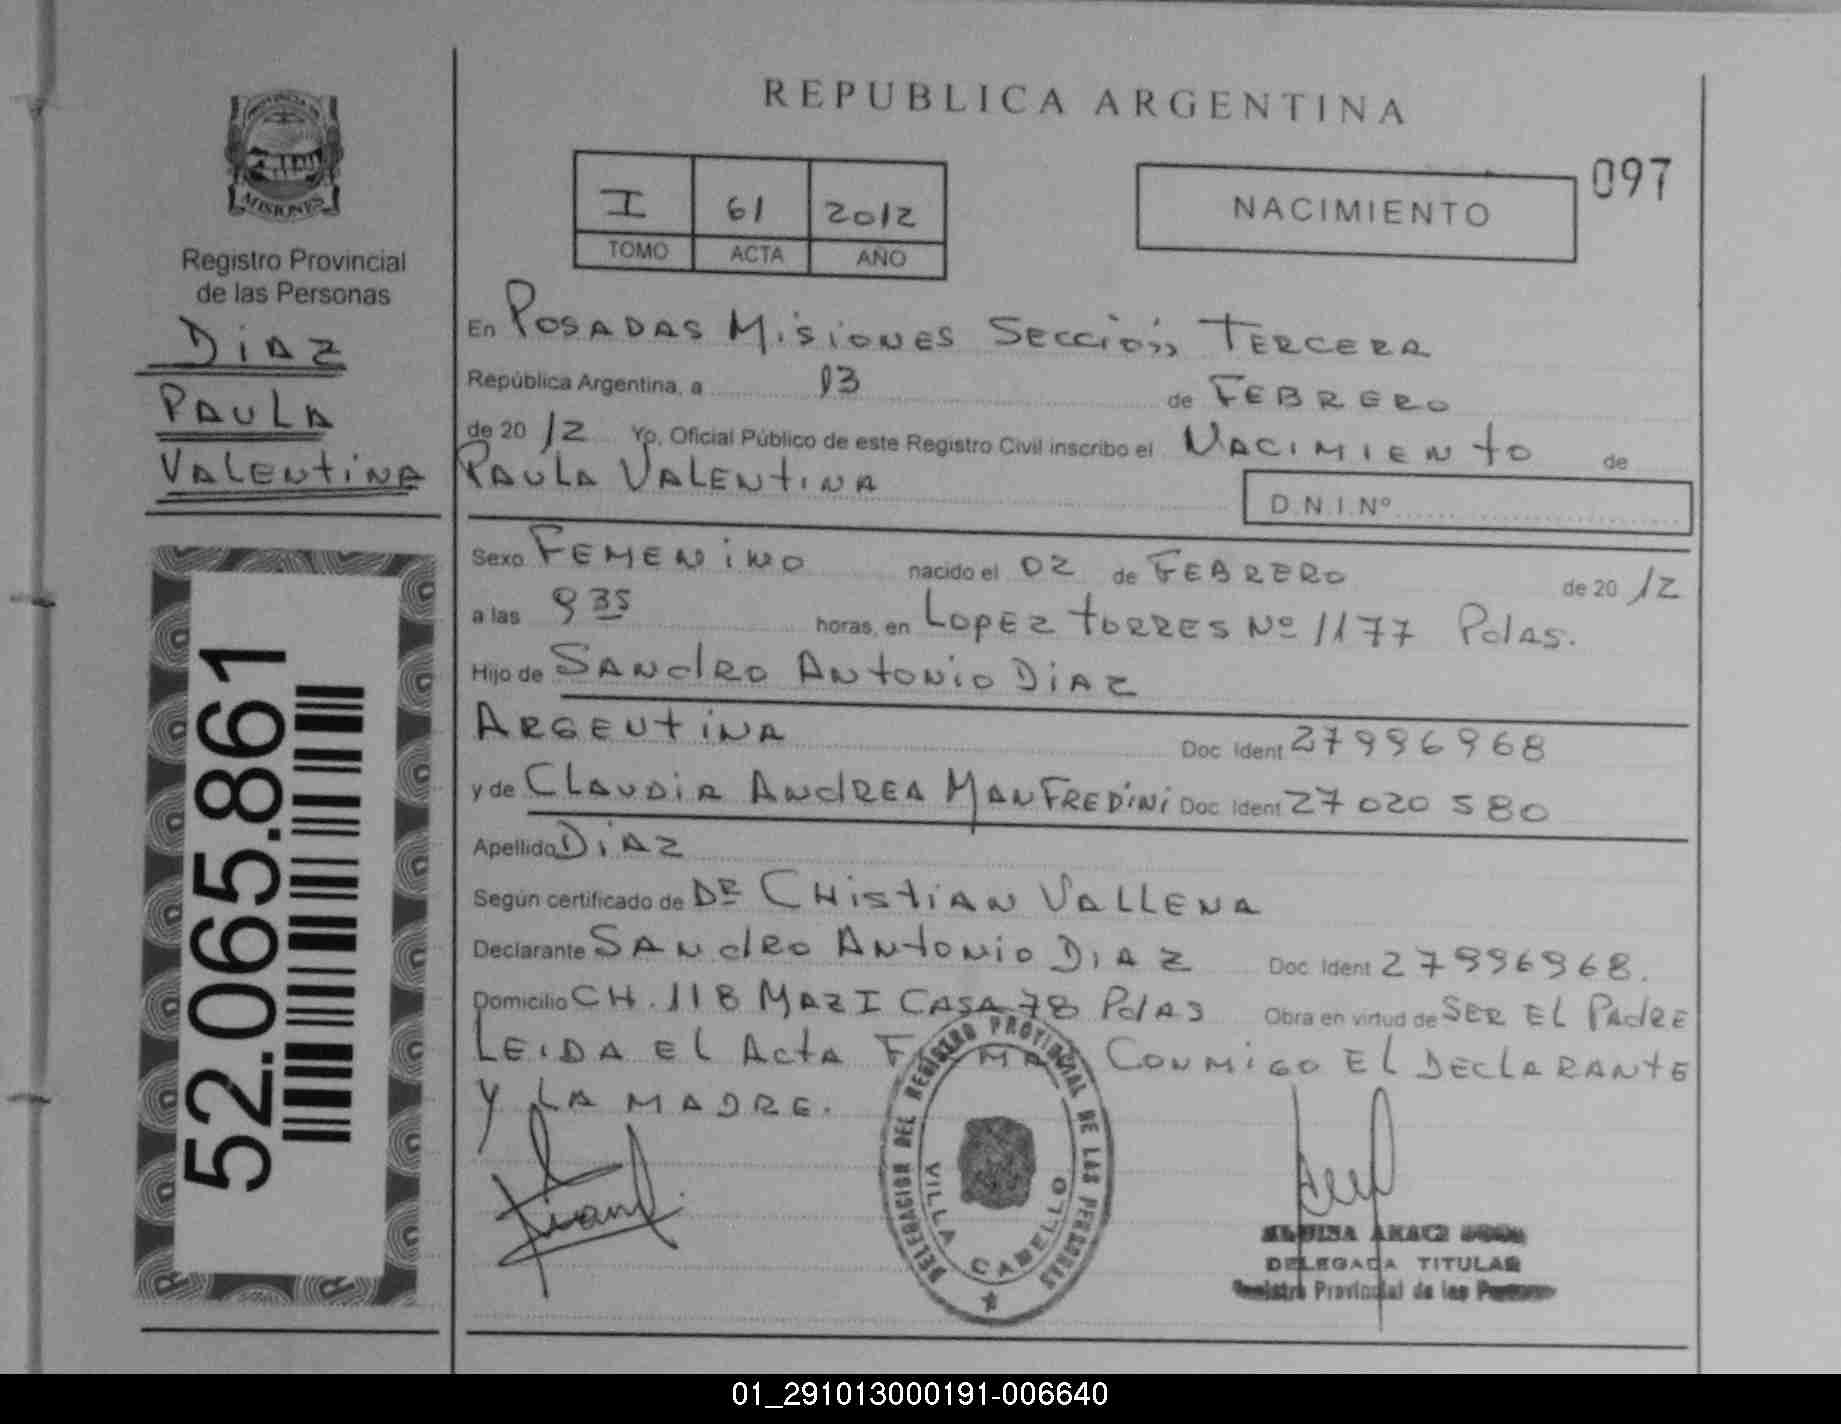 REPUBLICA ARGENTINA
PROVINCIA
MISIONES
Registro Provincial
de las Personas
DiAZ
PAULA
VALENtiNA
52.065.861
I 61 2012
TOMO ACTA AÑO
NACIMIENTO
097
En POSADAS MiSiONES SECCióN TERCERA
República Argentina, a 13 de FEBRERO
de 2012 Yo, Oficial Público de este Registro Civil inscribo el NACIMIENtO de
PAULA VALENtiNA
D.N.I.Nº
Sexo FEMENiNO nacido el 02 de FEBRERO de 2012
a las 9 35 horas, en LOPEZ tORRES Nº 1177 PdAS.
Hijo de SANdRO ANtONiO DiAZ
ARGENtiNA Doc Ident 27996968
y de CLAUDiA ANdREA MANFREDiNi Doc Ident 27 020 580
Apellido DiAZ
Según certificado de DR CHistiAN VALLENA
Declarante SANdRO ANtONiO DIAZ Doc Ident 27996968.
Domicilio CH. 118 MAZ I CASA 78 PdAS Obra en virtud de SER EL PAdRE
LEIDA EL ActA CONMiGO EL DECLARANtE
Y LA MADRE.
DELEGACION DEL REGISTRO PROVINCIAL DE LAS PERSONAS
VILLA CABELLO
DELEGADA TITULAR
Registro Provincial de las Personas
01_291013000191-006640